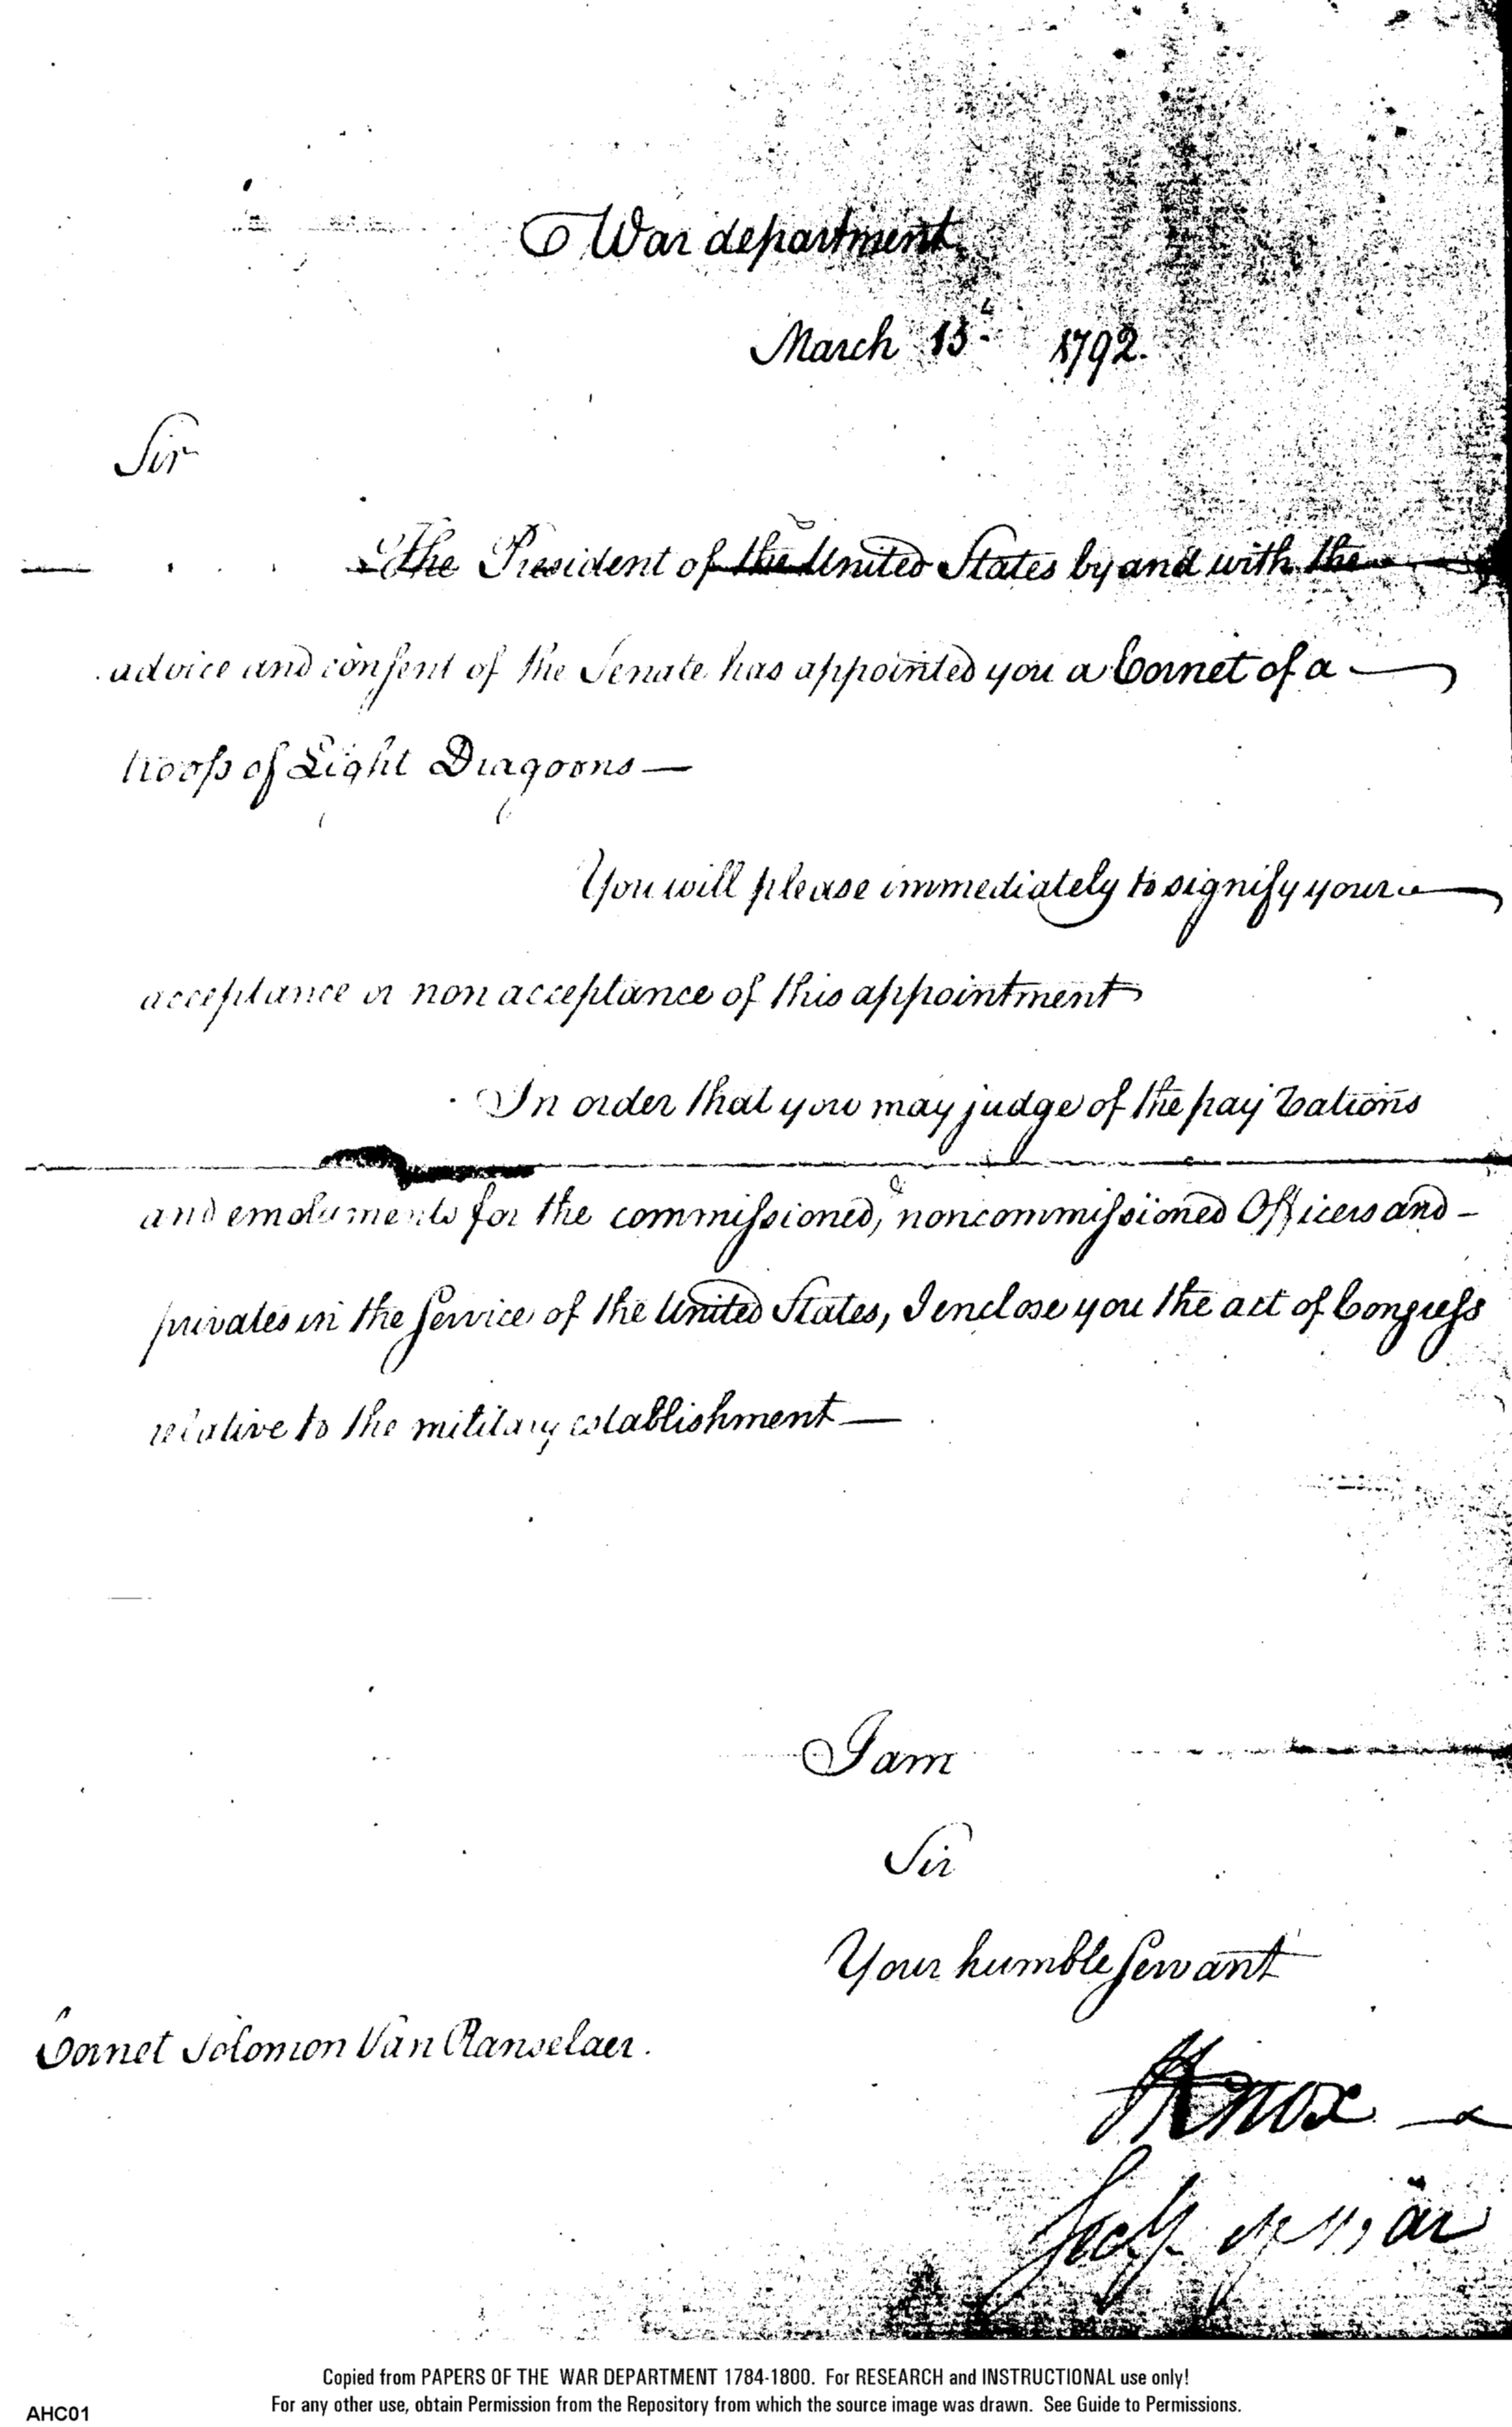 War department
March 15th 1792.
Sir
The President of the United States by and with the
advice and consent of the Senate has appointed you a Cornet of a
troop of Light Dragoons—
You will please immediately to signify your
acceptance or non acceptance of this appointment
In order that you may judge of the pay rations
and emoluments for the commissioned, & noncommissioned Officers and
privates in the Service of the United States, I enclose you the act of Congress
relative to the military establishment—
I am
Sir
Your humble Servant
Cornet Solomon Van Ranselaer.
HKnox
Secy of War
Copied from PAPERS OF THE WAR DEPARTMENT 1784-1800. For RESEARCH and INSTRUCTIONAL use only!
For any other use, obtain Permission from the Repository from which the source image was drawn. See Guide to Permissions.
AHC01